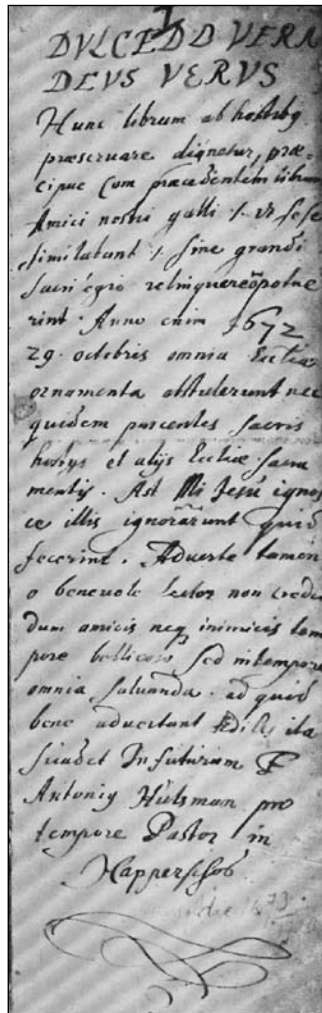 DVLCEDO VERA
DEVS VERVS
Hunc librum ab hostibq
præseruare dignetur, præ-
cipue Cum præcedentem librum
Amici nostri galli /. vt se se
similabant /. sine grandi
sacrilegio relinquere potue
rint. Anno enim 1672
29. octobris omnia Eccliæ
ornamenta abstulerunt nec
quidem parcentes sacris
hostys et alys Eccliæ sacra
mentis. Ast Mi Jesu ignos
ce illis ignorarunt quid
fecerint. Aduerte tamen
o beneuole lector non creden
dum amicis neq inimicis tem
pore bellicoso sed in tempore
omnia saluanda. ad quid
bene aduertant Ædiles ita
suadet In futurum F
Antoniq Hulsman pro
tempore Pastor in
Happerschoß